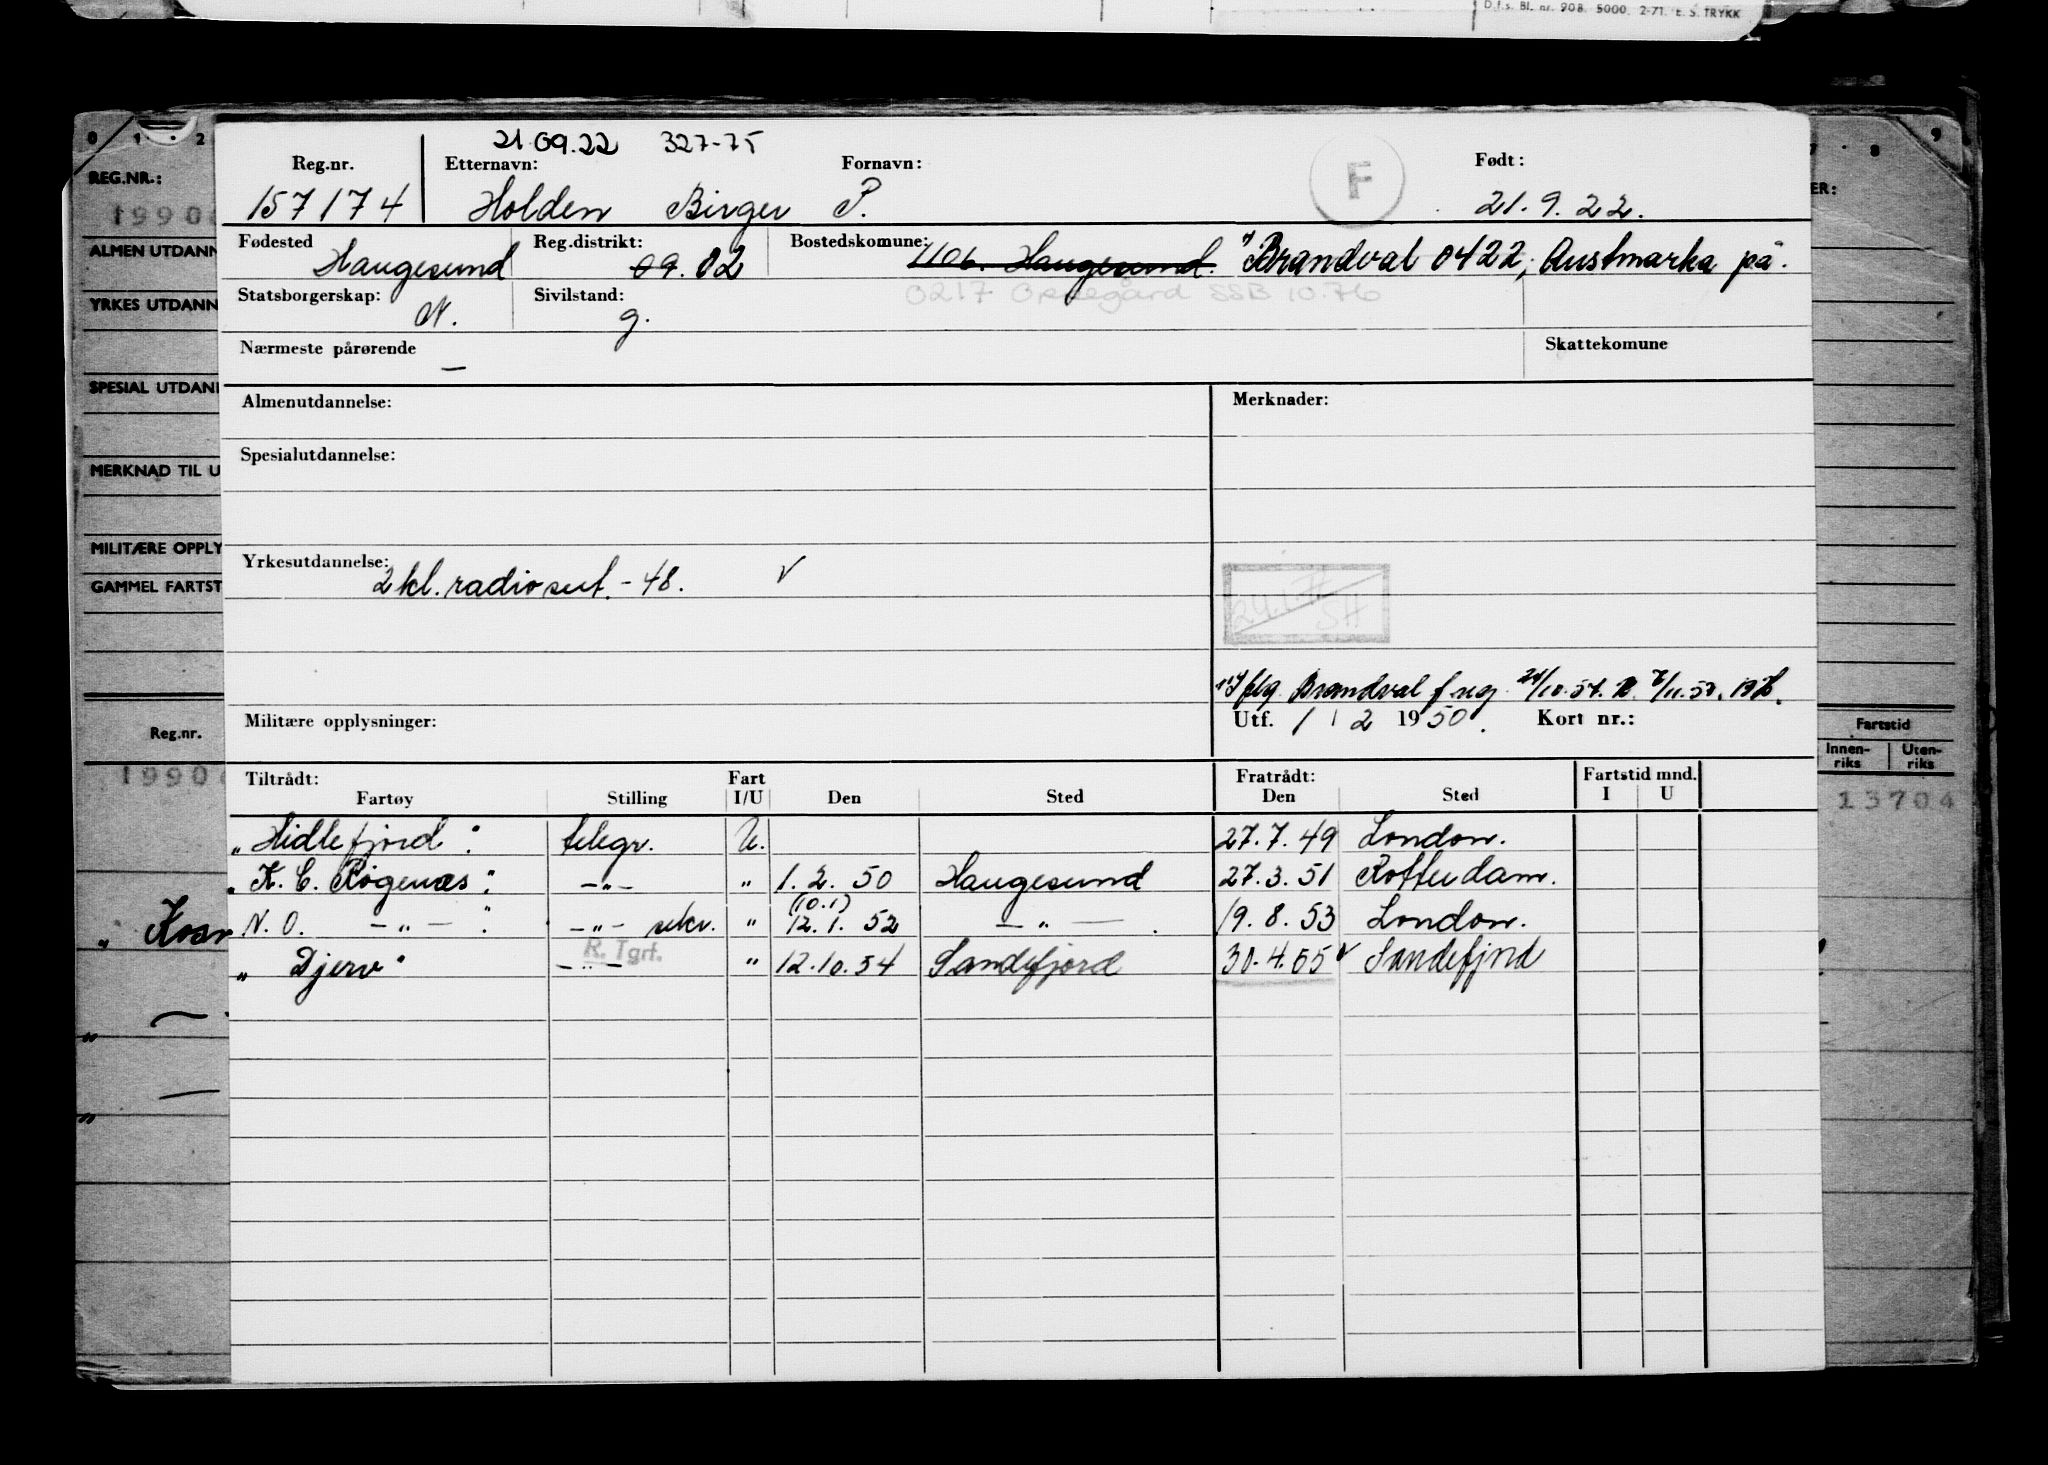 D.f.s. Bl. nr. 908. 5000. 2-71. E. S. TRYKK
0 1 2 8 9
REG.NR.:
19906
ALMEN UTDANN
YRKES UTDANN
SPESIAL UTDANN
MERKNAD TIL U
MILITÆRE OPPLY
GAMMEL FARTST
Reg.nr.
1990
ER:
Fartstid
Innen-riks Uten-riks
13704
21.09.22 327-75
Reg.nr. Etternavn: Fornavn: F Født:
157174 Holden Birger P. 21.9.22.
Fødested Reg.distrikt: Bostedskomune:
Haugesund 09. 02 1106. Haugesund. Brandval 0422, Austmarka på.
Statsborgerskap: Sivilstand: 0217 Oppegård SSB 10.76
N. g.
Nærmeste pårørende Skattekomune
—
Almenutdannelse: Merknader:
Spesialutdannelse:
Yrkesutdannelse:
2 kl. radiosert. - 48. V
SH
flg. Brandval f reg. 24/10.57.
Militære opplysninger: Utf. 1 / 2 1950. Kort nr.:
Tiltrådt: Fart Fratrådt: Fartstid mnd.
Fartøy Stilling I/U Den Sted Den Sted I U
"Hidlefjord": telegr. U. 27.7.49 London.
"K. C. Rogenæs": —"— " 1. 2. 50 Haugesund 27.3.51 Rotterdam.
(10.1)
N. O. —"— : —"— sekr. " 12. 1. 52 —"— . 19. 8. 53 London.
R. Tgrf.
"Djerv" —"— " 12.10.54 Sandefjord 30.4.65 V Sandefjord